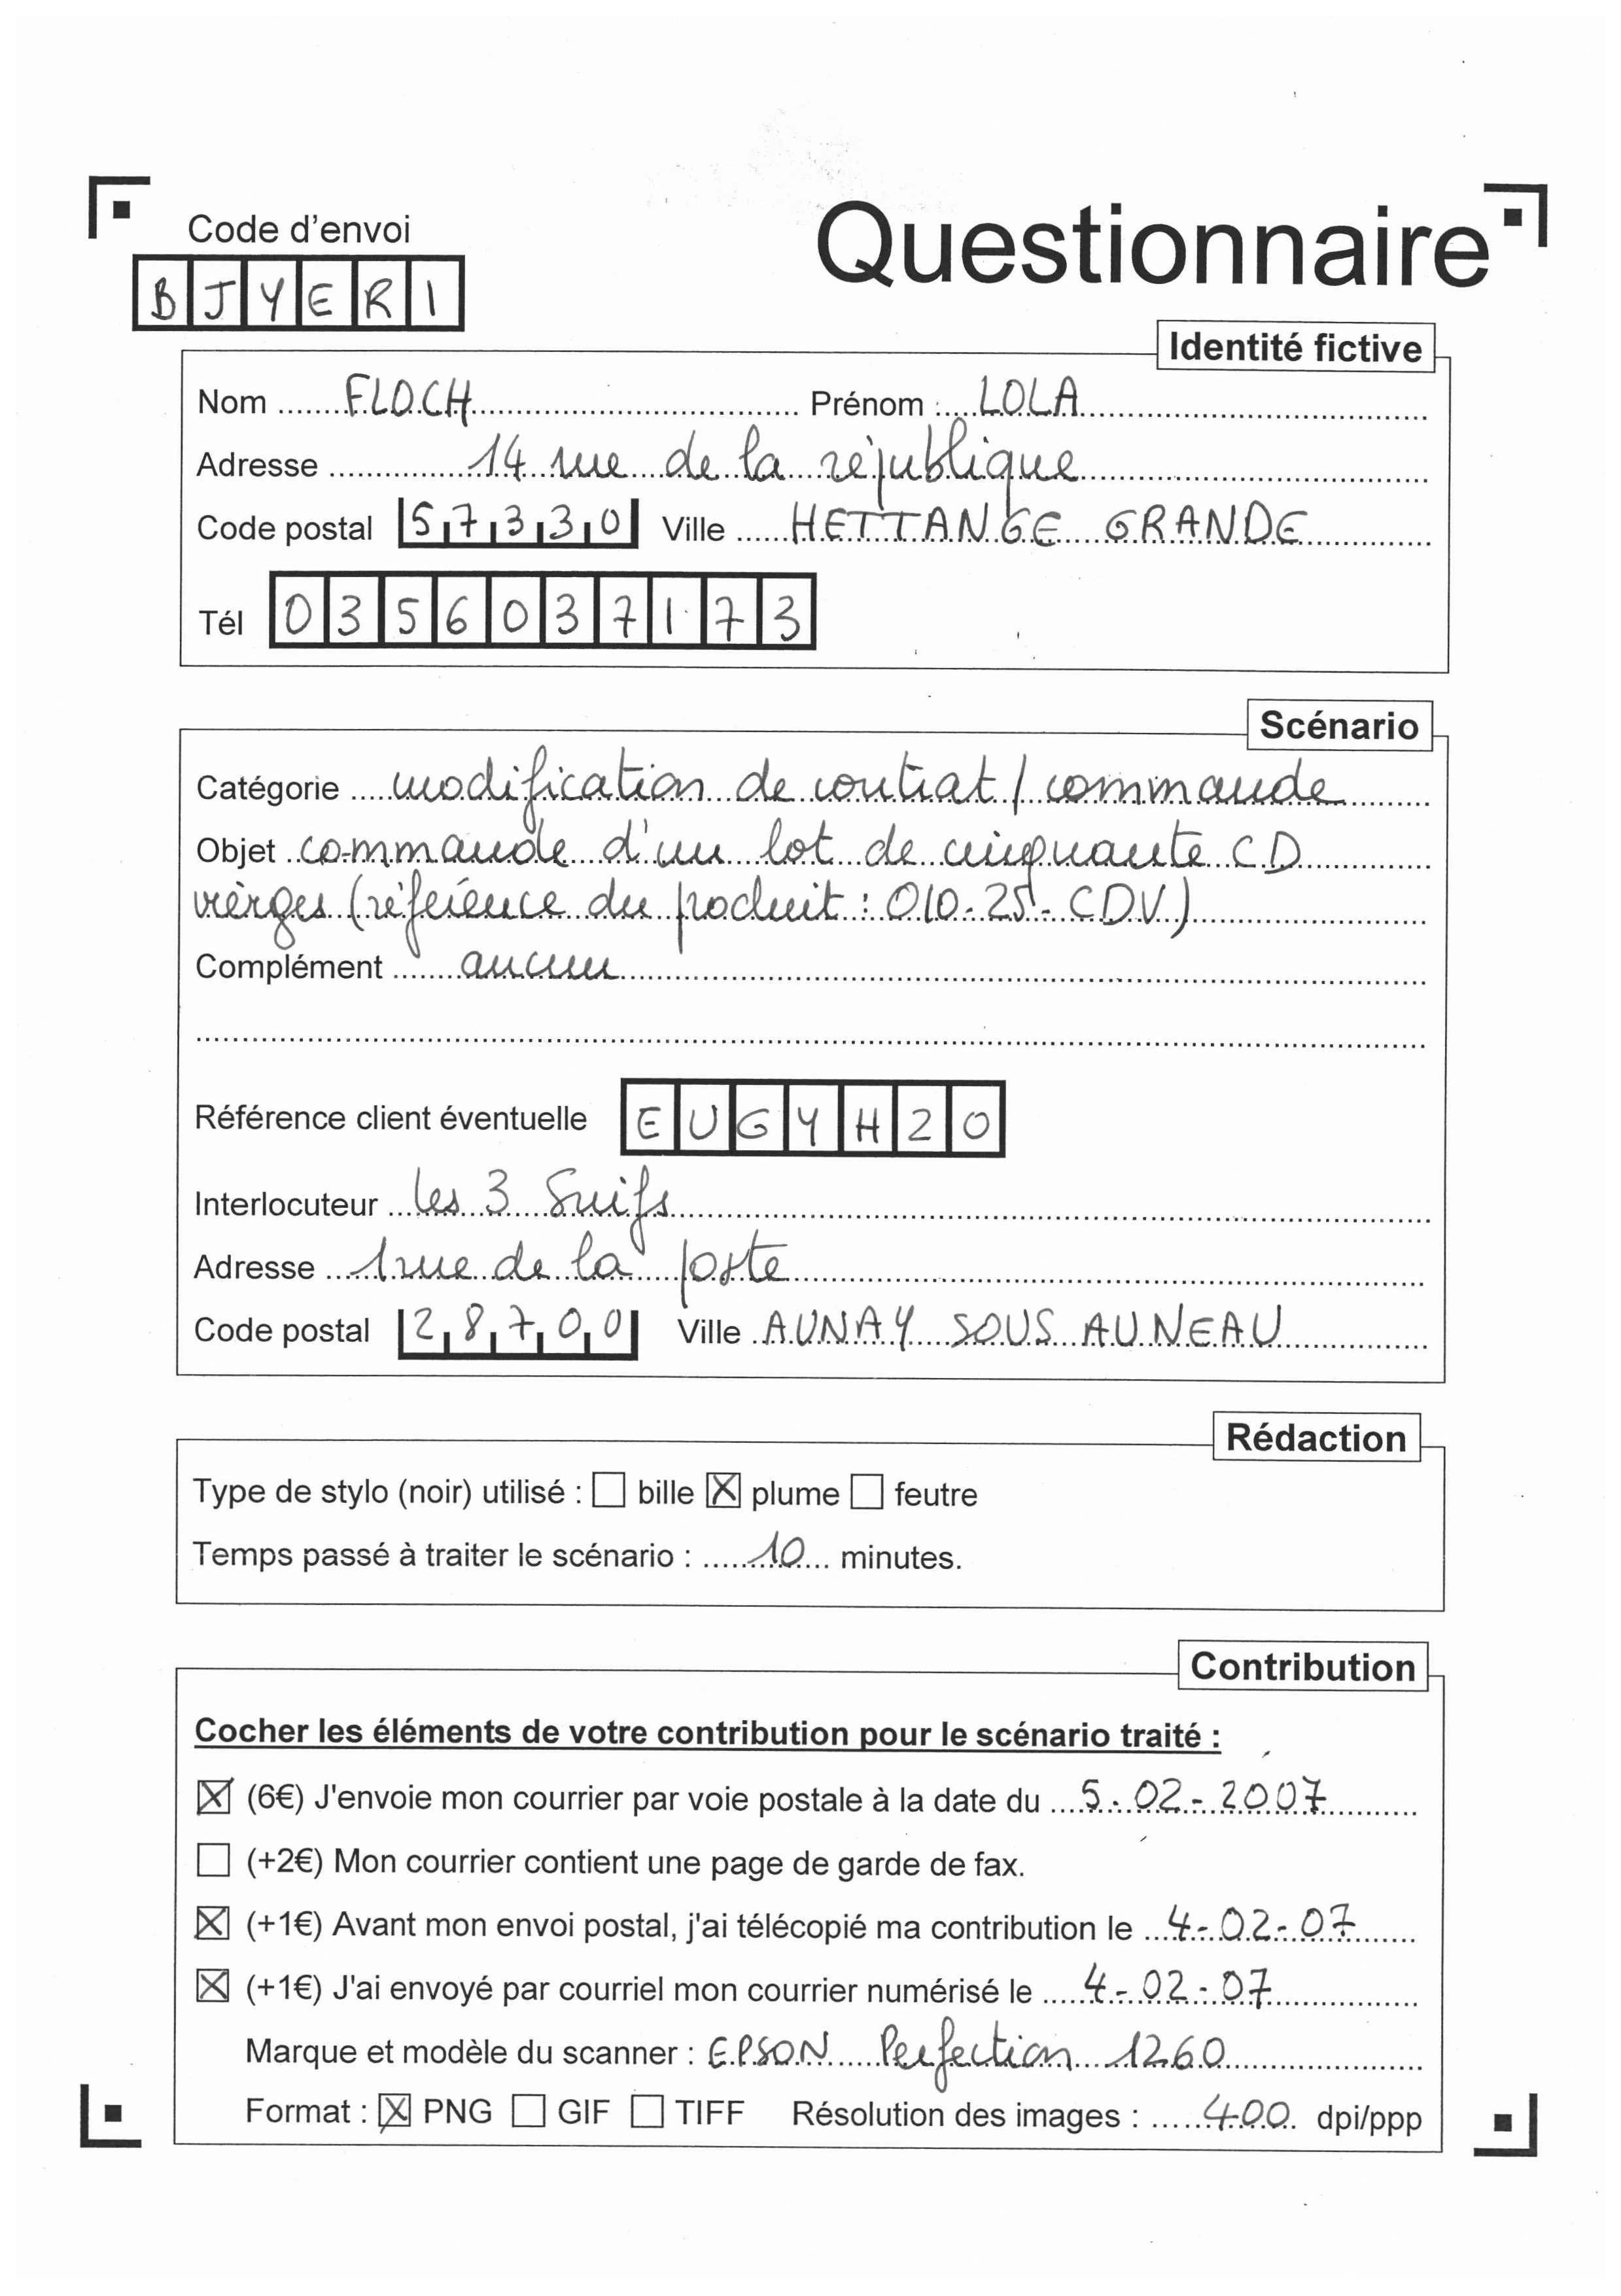 Code d'envoi
BJYERI
Questionnaire
Identité fictive
Nom FLOCH Prénom : LOLA
Adresse 14 rue de la république
Code postal 57330 Ville HETTANGE GRANDE
Tél 0356037173
Scénario
Catégorie modification de contrat / commande
Objet commande d'un lot de cinquante CD
vièrges (référence du produit : 010-25-CDV)
Complément aucun
Référence client éventuelle EUGYH20
Interlocuteur les 3 Suifs
Adresse 1 rue de la poste
Code postal 28700 Ville AUNAY SOUS AUNEAU
Rédaction
Type de stylo (noir) utilisé : ☐ bille ☒ plume ☐ feutre
Temps passé à traiter le scénario : 10 minutes.
Contribution
Cocher les éléments de votre contribution pour le scénario traité :
☒ (6€) J'envoie mon courrier par voie postale à la date du 5-02-2007
☐ (+2€) Mon courrier contient une page de garde de fax.
☒ (+1€) Avant mon envoi postal, j'ai télécopié ma contribution le 4-02-07
☒ (+1€) J'ai envoyé par courriel mon courrier numérisé le 4-02-07
Marque et modèle du scanner : EPSON Perfection 1260
Format : ☒ PNG ☐ GIF ☐ TIFF Résolution des images : 400 dpi/ppp